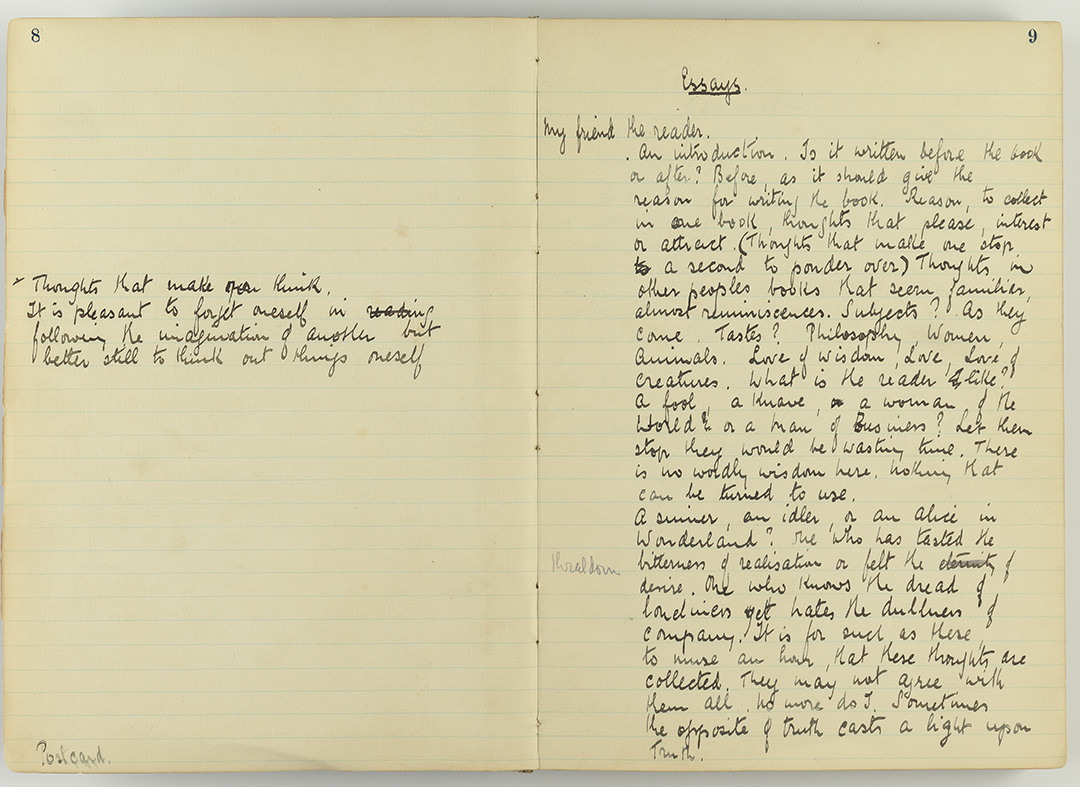 8
Thoughts that make one think.
It is pleasant to forget oneself in reading
following the imagination of another but
better still to think out things oneself
Postcard.
9
Essays.
My friend the reader.
. An introduction. Is it written before the book
or after? Before, as it should give the
reason for writing the book. Reason, to collect
in one book, thoughts that please, interest
or attract. (Thoughts that make one stop
to a second to ponder over) Thoughts in
other peoples books that seem familiar,
almost reminiscences. Subjects? As they
come. Tastes? Philosophy, Women,
Animals. Love of wisdom, Love, Love of
creatures. What is the reader like?
A fool, a knave, a woman of the
world? or a man of Business? Let them
stop they would be wasting time. There
is no wordly wisdom here. Nothing that
can be turned to use.
A sinner, an idler, or an alice in
Wonderland? One who has tasted the
bitterness of realisation or felt the eternity of
thraldom
desire. One who knows the dread of
loneliness yet hates the dullness of
company. It is for such as these,
to muse an hour, that these thoughts are
collected. They may not agree with
them all. No more do I. Sometimes
the opposite of truth casts a light upon
Truth.